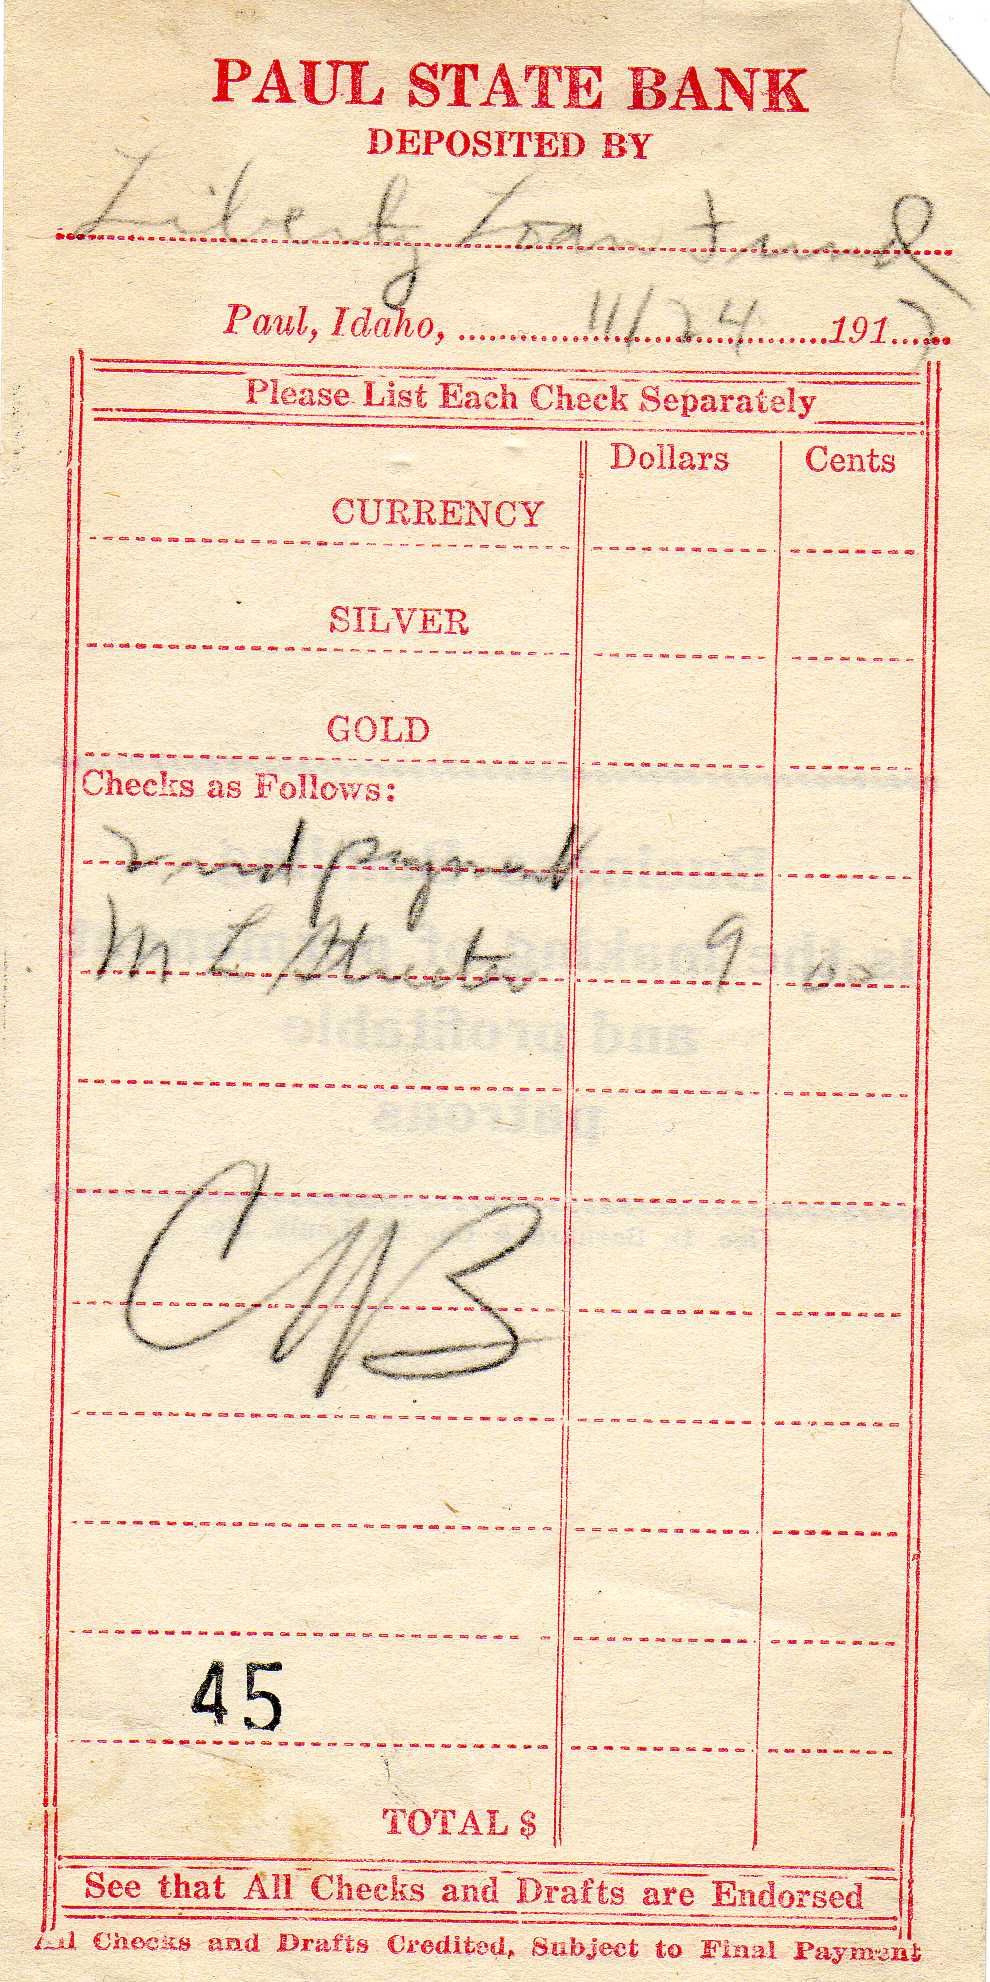 PAUL STATE BANK
DEPOSITED BY
Liberty Loan Fund
Paul, Idaho, 11/24 1917
Please List Each Check Separately
Dollars Cents
CURRENCY
SILVER
GOLD
Checks as Follows:
2nd payment
M L Streeter 9 00
CWB
45
TOTAL $
See that All Checks and Drafts are Endorsed
All Checks and Drafts Credited, Subject to Final Payment